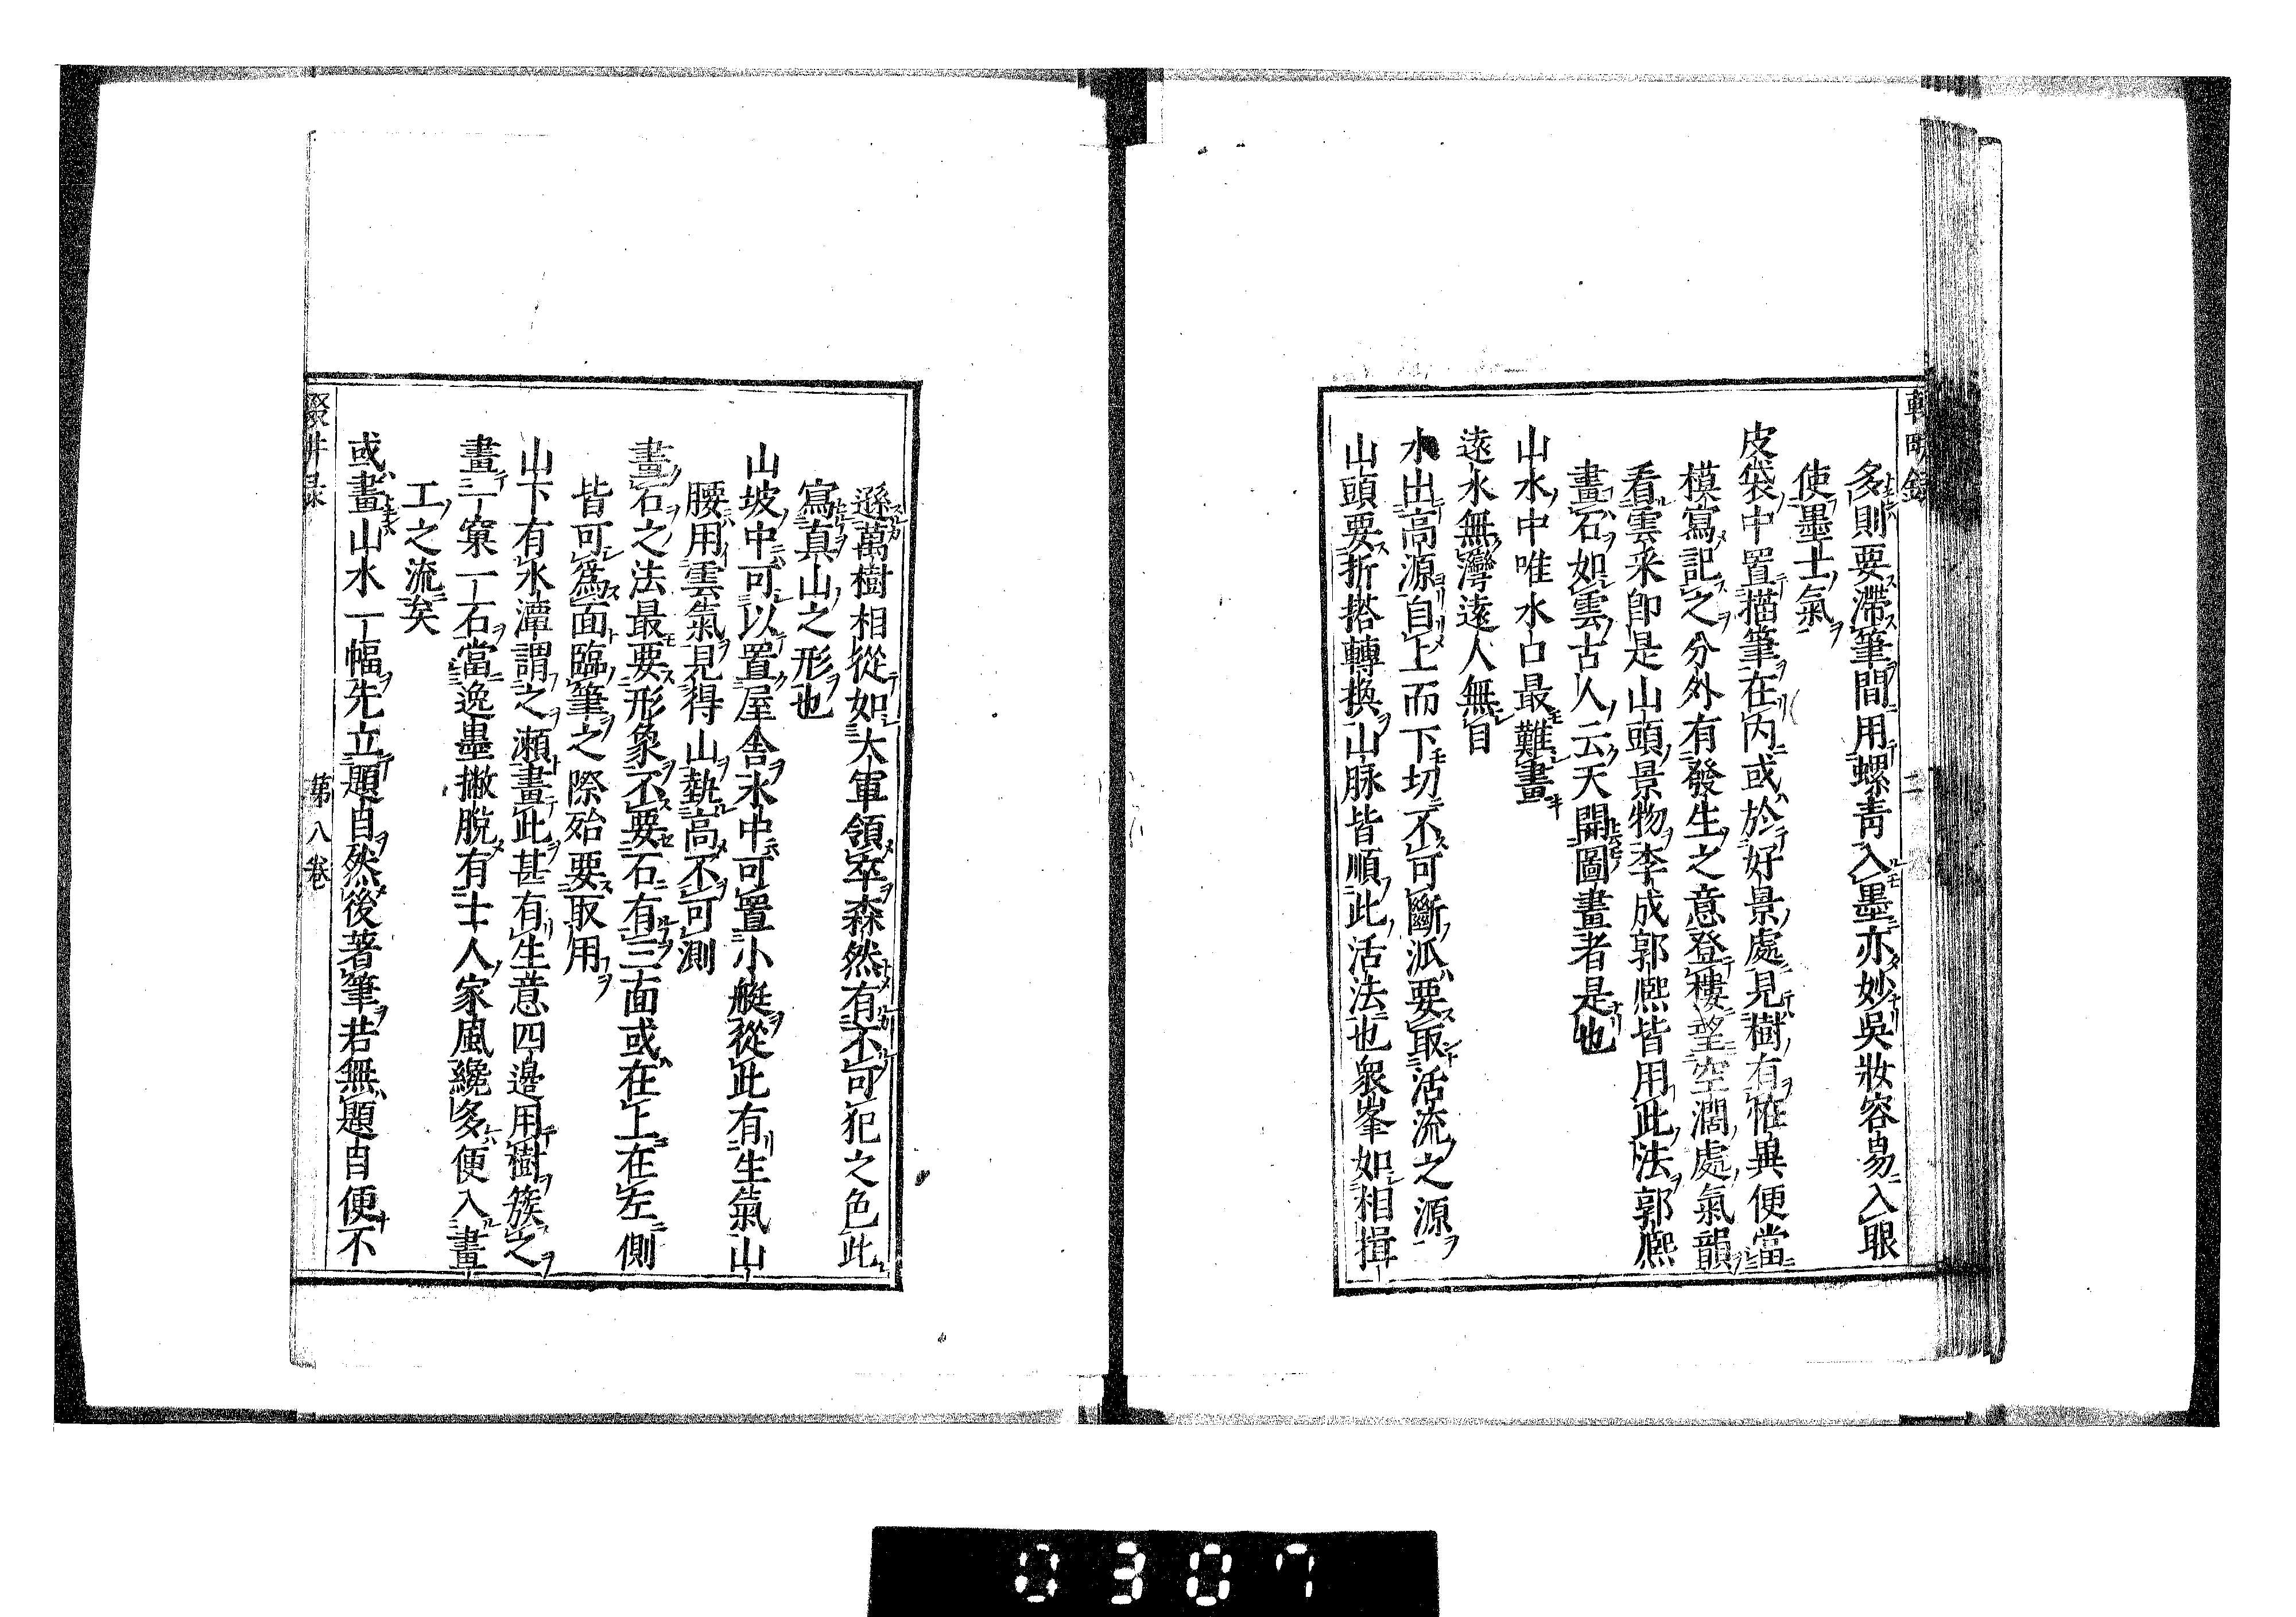 多則要滯筆間用螺青入墨亦妙吳妝容易入眼
使墨士氣
皮袋中置描筆在內或於好景處見樹有恠異便當
模寫記之分外有發生之意登樓望空濶處氣韻
看雲采卽是山頭景物李成郭熈皆用此法郭熈
畫石如雲古人云天開圖畫者是也
山水中唯水口最難畫
遠水無灣遠人無目
水出高源自上而下切不可斷派要取活流之源
山頭要折搭轉換山脉皆順此活法也衆峯如相揖
遜萬樹相從如大軍領卒森然有不可犯之色此
寫真山之形也
山坡中可以置屋舍水中可置小艇從此有生氣山
腰用雲氣見得山勢高不可測
畫石之法最要形象不要石有三面或在上在左側
皆可爲面臨筆之際殆要取用
山下有水潭謂之瀬畫此甚有生意四邊用樹簇之
畫一窠一石當逸墨撇脫有士人家風纔多便入畫
工之流矣
或畫山水一幅先立題目然後著筆若無題目便不
第八卷
0307